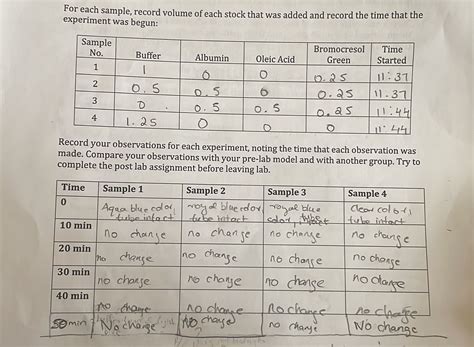 For each sample, record volume of each stock that was added and record the time that the
experiment was begun:
Sample No. Buffer Albumin Oleic Acid Bromocresol Green Time Started
1 1 0 0 0.25 11:37
2 0.5 0.5 0 0.25 11.37
3 0 0.5 0.5 0.25 11:44
4 1.25 0 0 0 11:44
Record your observations for each experiment, noting the time that each observation was
made. Compare your observations with your pre-lab model and with another group. Try to
complete the post lab assignment before leaving lab.
Time Sample 1 Sample 2 Sample 3 Sample 4
0 Aqua blue color, tube intact royal blue color, tube intact royal blue color, tube intact clear color, tube intact
10 min no change no change no change no change
20 min no change no change no change no change
30 min no change no change no change no change
40 min no change no change no change no change
50 min No change No change no change No change